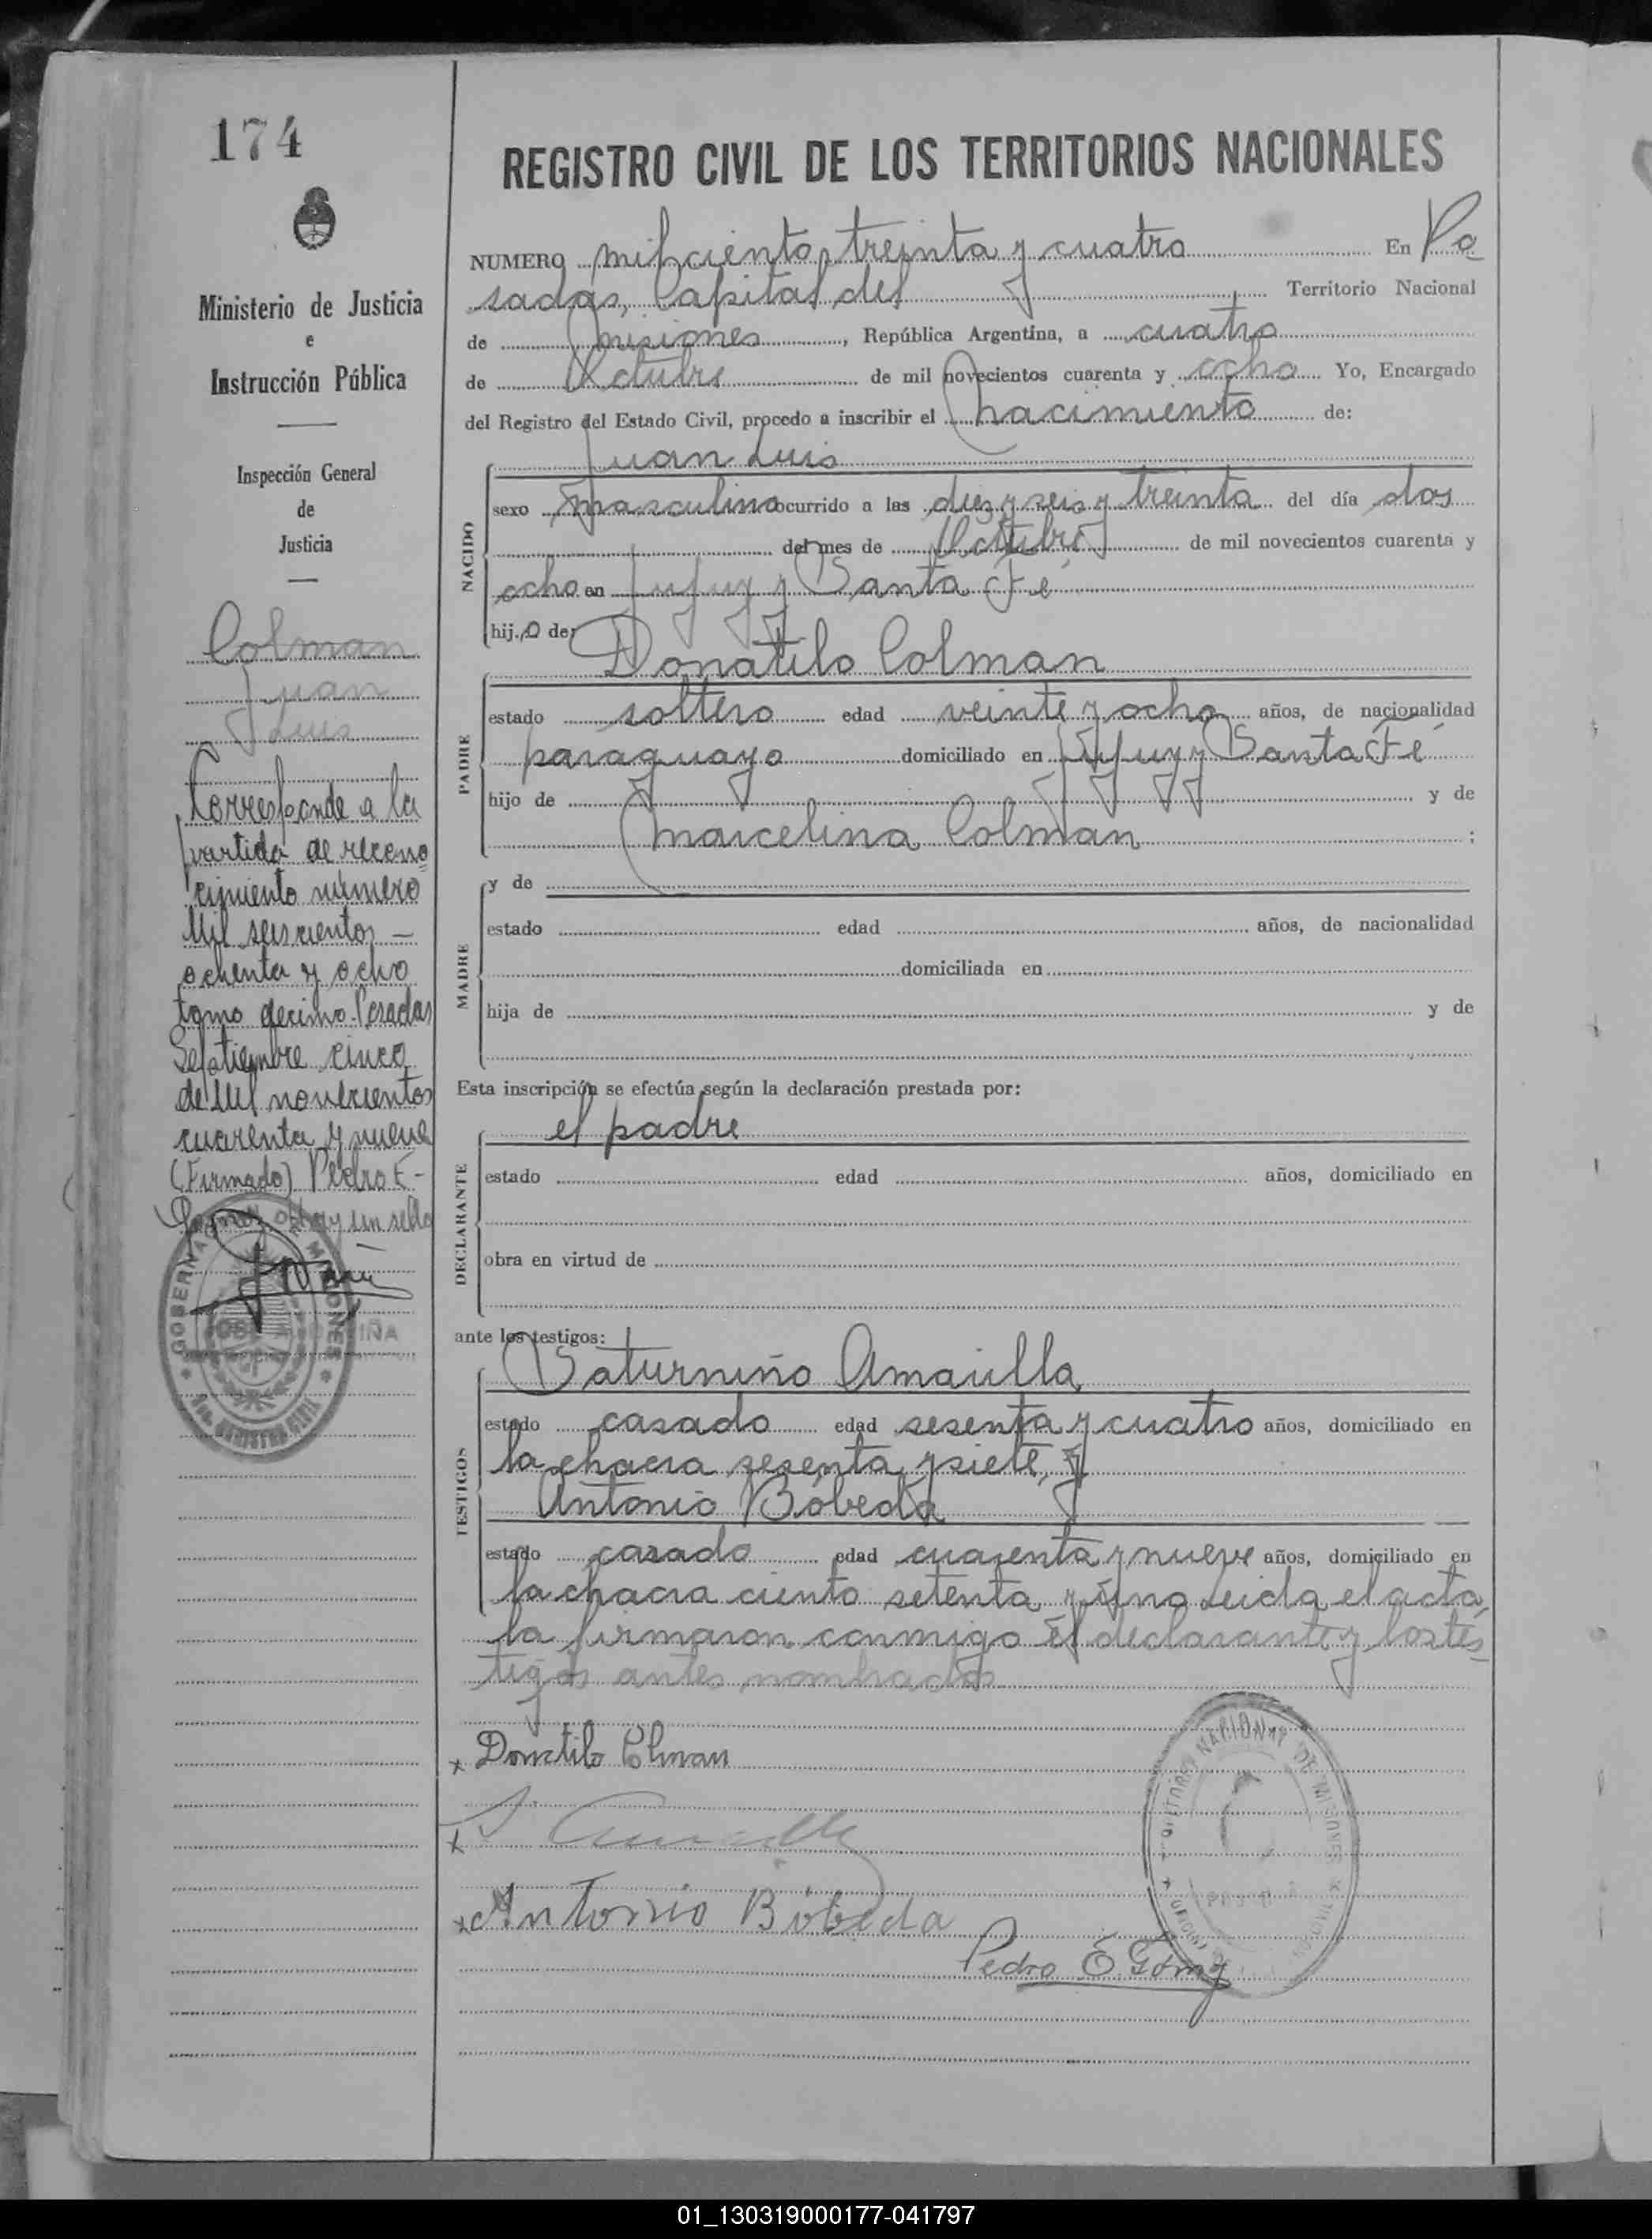 174
Ministerio de Justicia
e
Instrucción Pública
Inspección General
de
Justicia
Colman
Juan
Luis
Corresponde a la
partida de recono
cimiento número
Mil seiscientos —
ochenta y ocho
tomo decimo. Posadas
Septiembre cinco
de Mil novecientos
cuarenta y nueve
(Firmado) Pedro E-
Gomez Hay un sello
GOBERNACION DE MISIONES
REGISTRO CIVIL DE LOS TERRITORIOS NACIONALES
NUMERO mil ciento treinta y cuatro En Po
sadas, Capital del Territorio Nacional
de Misiones, República Argentina, a cuatro
de Octubre de mil novecientos cuarenta y ocho Yo, Encargado
del Registro del Estado Civil, procedo a inscribir el nacimiento de:
NACIDO
Juan Luis
sexo masculino ocurrido a las diez y seis y treinta del día dos
del mes de Octubre de mil novecientos cuarenta y
ocho en Jujuy y Santa Fé
hijo de:
PADRE
Donatilo Colman
estado soltero edad veinte y ocho años, de nacionalidad
paraguayo domiciliado en Jujuy y Santa Fé
hijo de y de
Marcelina Colman ;
MADRE
y de
estado edad años, de nacionalidad
domiciliada en
hija de y de
Esta inscripción se efectúa según la declaración prestada por:
DECLARANTE
el padre
estado edad años, domiciliado en
obra en virtud de
ante los testigos:
TESTIGOS
Saturnino Amarilla
estado casado edad sesenta y cuatro años, domiciliado en
la chacra sesenta y siete, y
Antonio Bóbeda
estado casado edad cuarenta y nueve años, domiciliado en
la chacra ciento setenta y uno Leida el acta,
la firmaron conmigo el declarante y los tes
tigos antes nombrados
x Donatilo Colman
x
x Antonio Bóbeda
Pedro E. Gómez
NACIONAL DE MISIONES
01_130319000177-041797